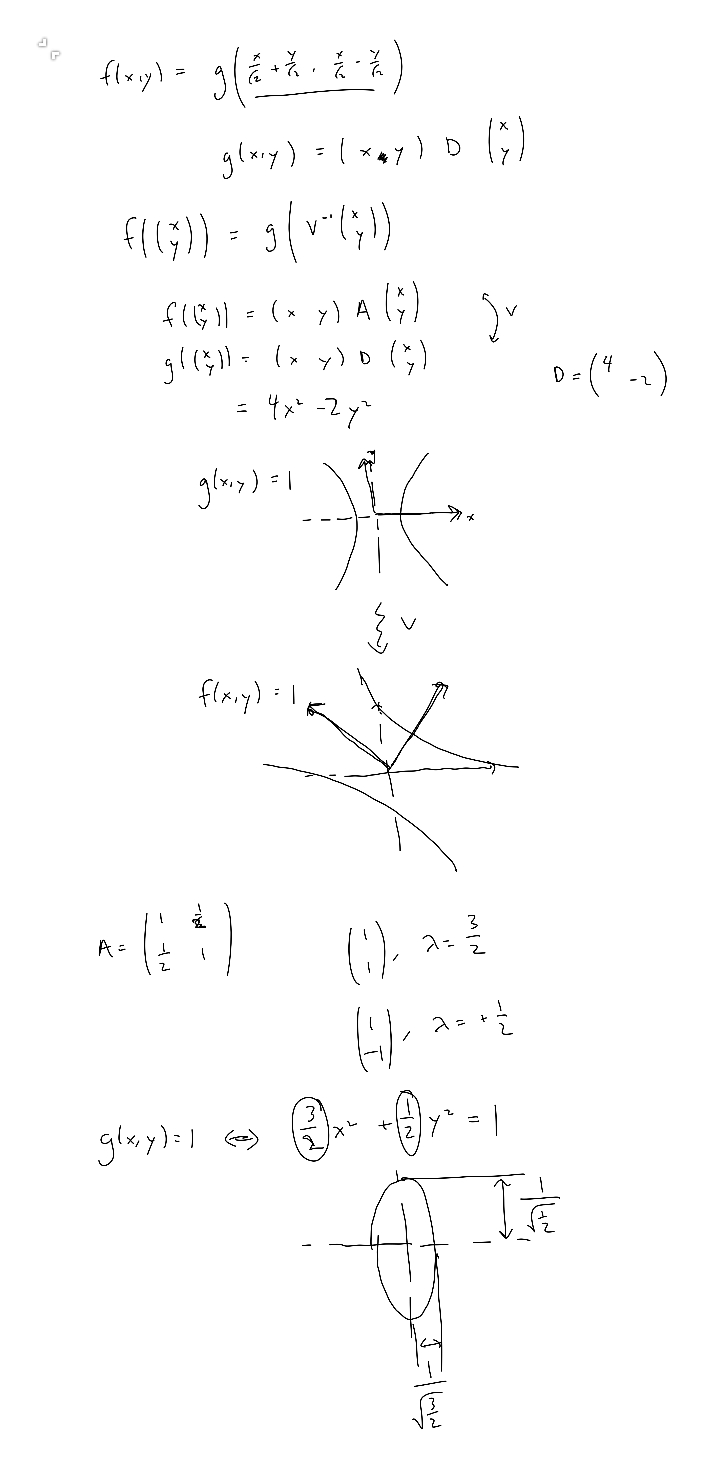 f(x,y) = g(x/√2 + y/√2, x/√2 - y/√2)
g(x,y) = (x y) D (x y)
f((x y)) = g(V⁻¹(x y))
f((x y)) = (x y) A (x y) V
g((x y)) = (x y) D (x y) D = (4 -2)
= 4x² - 2y²
g(x,y) = 1
x
V
f(x,y) = 1
A = (1 1/2 1/2 1) (1 1), λ = 3/2
(1 -1), λ = + 1/2
g(x,y) = 1 ⇔ 3/2 x² + 1/2 y² = 1
1/√(1/2)
1/√(3/2)